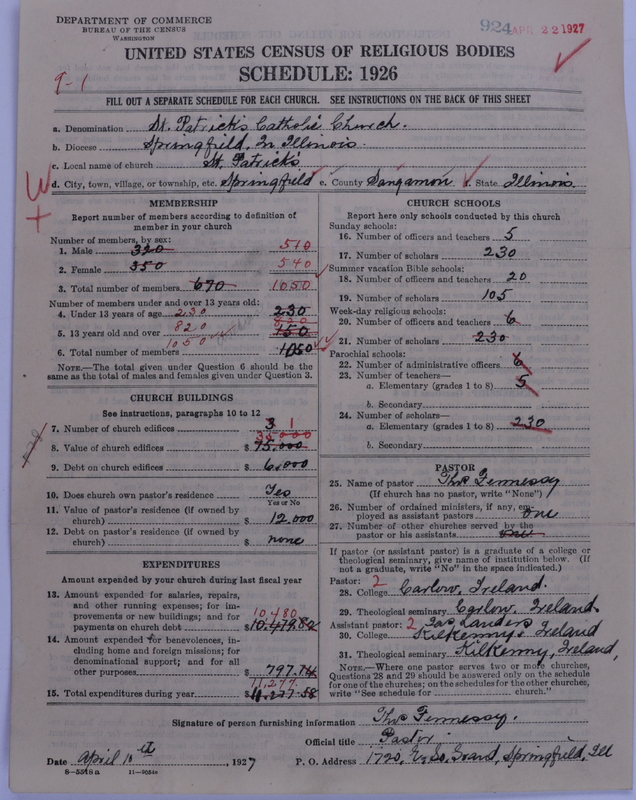 DEPARTMENT OF COMMERCE
BUREAU OF THE CENSUS
WASHINGTON
924 APR 22 1927
UNITED STATES CENSUS OF RELIGIOUS BODIES
SCHEDULE: 1926
9-1
FILL OUT A SEPARATE SCHEDULE FOR EACH CHURCH. SEE INSTRUCTIONS ON THE BACK OF THIS SHEET
a. Denomination St. Patrick's Catholic Church.
b. Diocese Springfield, In Illinois.
c. Local name of church St. Patrick's
d. City, town, village, or township, etc. Springfield e. County Sangamon f. State Illinois
MEMBERSHIP
Report number of members according to definition of
member in your church
Number of members, by sex:
1. Male 320 510
2. Female 350 540
3. Total number of members 670 1050
Number of members under and over 13 years old:
4. Under 13 years of age 230 230
5. 13 years old and over 820 820 150
6. Total number of members 1050 1050
NOTE.—The total given under Question 6 should be
same as the total of males and females given under Question 3.
CHURCH BUILDINGS
See instructions, paragraphs 10 to 12
7. Number of church edifices 3 1
8. Value of church edifices $ 75,000
9. Debt on church edifices $ 6,000
10. Does church own pastor's residence Yes
Yes or No
11. Value of pastor's residence (if owned by
church) $ 12,000
12. Debt on pastor's residence (if owned by
church) $ none
EXPENDITURES
Amount expended by your church during last fiscal year
13. Amount expended for salaries, repairs,
and other running expenses; for im-
provements or new buildings; and for
payments on church debt 10,480 $ 10,479.82
14. Amount expended for benevolences, in-
cluding home and foreign missions; for
denominational support; and for all
other purposes $ 797.74
15. Total expenditures during year 11,277 $ 11,277.58
CHURCH SCHOOLS
Report here only schools conducted by this church
Sunday schools:
16. Number of officers and teachers 5
17. Number of scholars 230
Summer vacation Bible schools:
18. Number of officers and teachers 20
19. Number of scholars 105
Week-day religious schools:
20. Number of officers and teachers 6
21. Number of scholars 230
Parochial schools:
22. Number of administrative officers 6
23. Number of teachers—
a. Elementary (grades 1 to 8) 5
b. Secondary
24. Number of scholars—
a. Elementary (grades 1 to 8) 230
b. Secondary
PASTOR
25. Name of pastor Thos Fennessy
(If church has no pastor, write "None")
26. Number of ordained ministers, if any, em-
ployed as assistant pastors one
27. Number of other churches served by the
pastor or his assistants one
If pastor (or assistant pastor) is a graduate of a college or
theological seminary, give name of institution below. (If
not a graduate, write "No" in the space indicated.)
Pastor: 2
28. College Carlow, Ireland.
29. Theological seminary Carlow, Ireland
Assistant pastor: 2 Jas Landers
30. College Kilkenny, Ireland
31. Theological seminary Kilkenny, Ireland,
NOTE.—Where one pastor serves two or more churches,
Questions 28 and 29 should be answered only on the schedule
for one of the churches; on the schedules for the other churches,
write "See schedule for church."
Signature of person furnishing information Thos Fennessy.
Official title Pastor
Date April 10th, 1927 P. O. Address 1720, E. So. Grand, Springfield, Ill
8-5518a 11-9054